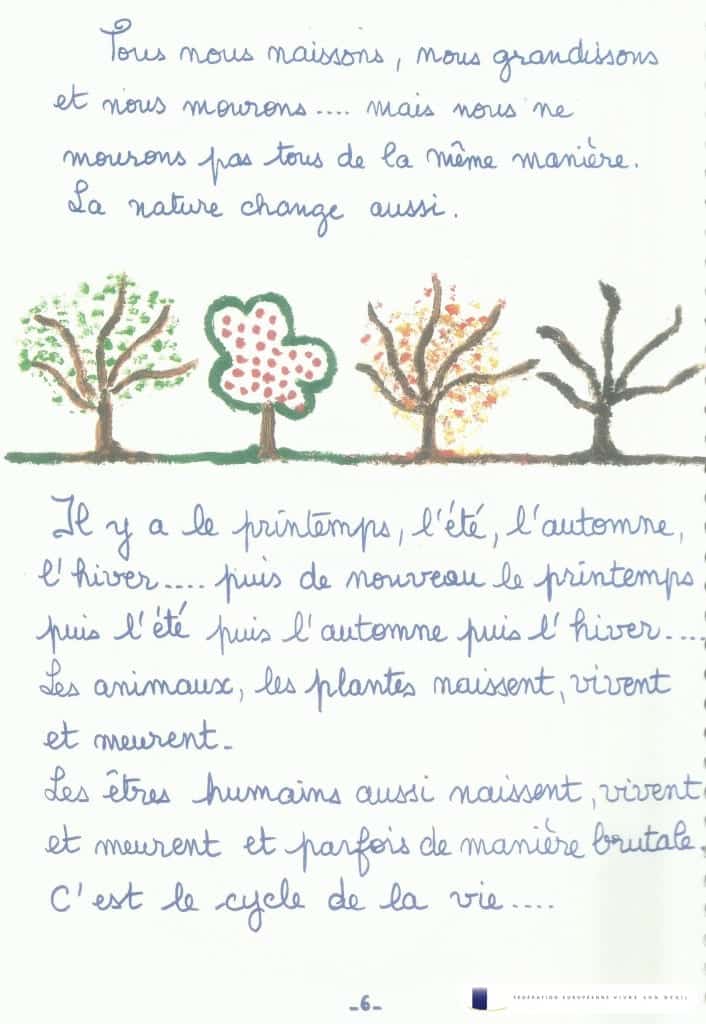 Tous nous naissons, nous grandissons
et nous mourons.... mais nous ne
mourons pas tous de la même manière.
La nature change aussi.
Il y a le printemps, l'été, l'automne,
l'hiver.... puis de nouveau le printemps
puis l'été puis l'automne puis l'hiver....
Les animaux, les plantes naissent, vivent
et meurent.
Les êtres humains aussi naissent, vivent
et meurent et parfois de manière brutale.
C'est le cycle de la vie....
-6-
FEDERATION EUROPEENNE VIVRE SON DEUIL